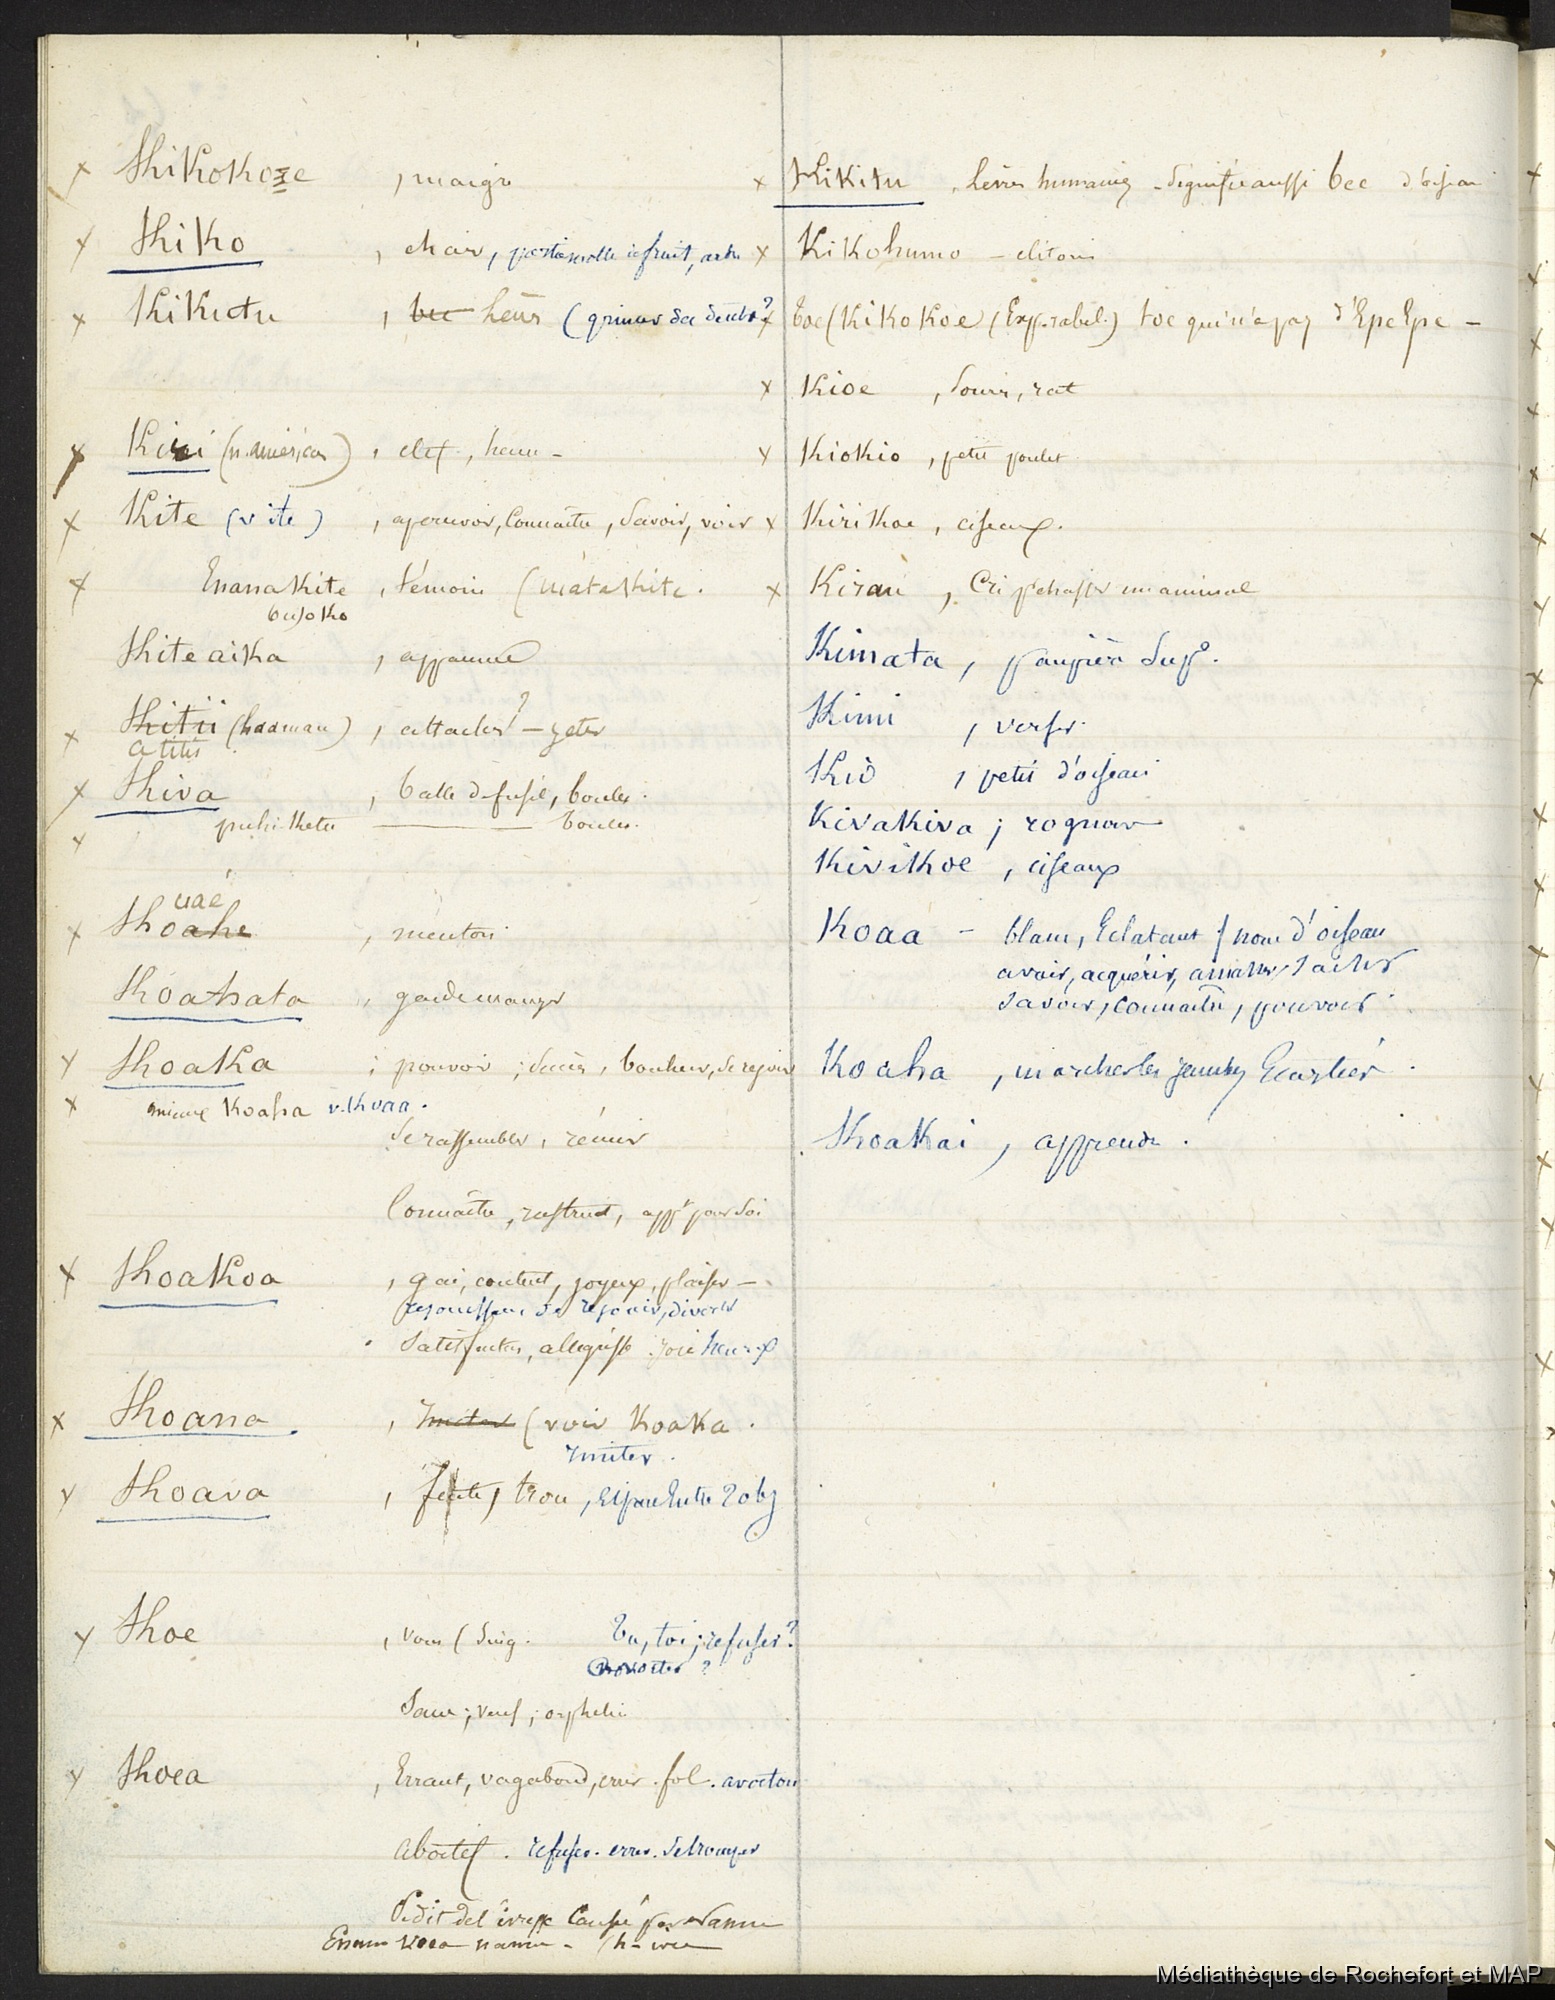 Kikokoze , maigre
Kiko , chair, partie molle d. fruit, arbre
Kikutu , bec lèvres (grincer des dents ?
Kiri (n. américan) , clef,
Kite (v ite) , apercevoir, Connaître, Savoir, voir
Enana Kite , témoin (matakite.
Kite aika , 
Kitii (haamau) , attacher ? – jeter
atitii
Kiva , balle d. fusil, boulet.
puhi Ketu ——— boulet.
uaé
Koahe , menton
Koahata , garde manger
Koaka ; pouvoir ; succès, bonheur, se réjouir
Koaha v. Koaa.
Se rassembler, réunir
Connaître, , pour soi
Koakoa , gai, content, joyeux, plaisir –
réjouissance se réjouir, divertir
Satisfaction, joie heureux
Koana , Imiter (voir Koaka.
Imiter.
Koava , fente, trou, Espace Entre 2 obj
Koe , vous (Sing. Tu, toi ; refuser ?
avorter ?
Sans ; veuf ; orphelin
Koea , Errant, vagabond, errer. fol. avorton
abortif. refuser. errer. Se tromper
Se dit de l'ivresse Causée par namu
Enana Koea namu –
Kikitu , lèvres humaines – Signifie aussi bec d'oiseau
Kikohumo – clitoris
toe (Kikokoe) (Exp. rabel.) toe qui n'a pas d'Epe Epe –
Kioe , Souris, rat
Kiokio , petit poulet
Kirikoe , ciseaux.
Kirau , Cri p. chasser un animal
Kimata , paupière Supre.
Kimi , verser.
Kio , petit d'oiseau
Kivakiva ; rogner
Kivikoe , ciseaux
Koaa – blanc, Eclatant / nom d'oiseau
avoir, acquérir, amasser, tacher
Savoir, connaître, pouvoir.
Koaha , marcher les jambes Ecartées.
Koakai , apprendre.
Médiathèque de Rochefort et MAP